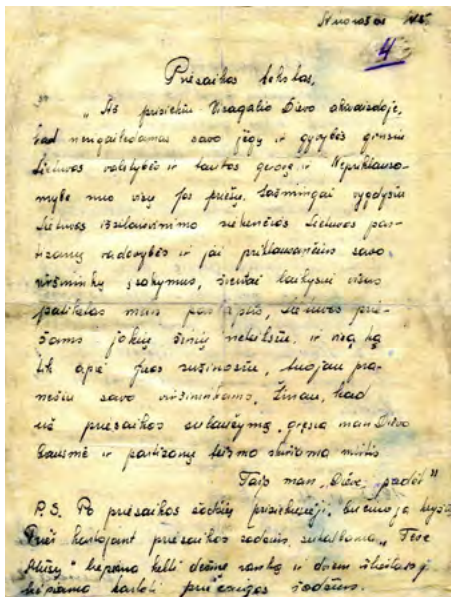 Nuorašas Nr.
4
Priesaikos tekstas.
„Aš prisiekiu Visagalio Dievo akivaizdoje,
kad nesigailėdamas savo jėgų ir gyvybės ginsiu
Lietuvos valstybės ir tautos gerovę ir Nepriklauso-
mybę nuo visų jos priešų. Sąžiningai vygdysiu
Lietuvos išsilaisvinimo siekenčios Lietuvos par-
tizanų vadovybės ir jai priklausančius savo
viršininkų įsakymus, šventai laikysiu visas
patikėtas man paslaptis, Lietuvos prie-
šams jokių žinių neteiksiu, ir visą ką
tik apie juos sužinosiu, tuojau pra-
nešiu savo viršininkams. Žinau, kad
už priesaikos sulaužymą, gręsia man Dievo
bausmė ir partizanų teismo skiriama mirtis
Taip man „Dieve, padėk"
P.S. Po priesaikos žodžių prisiekusieji, bučiuoja kryžių
Prieš kartojant priesaikos žodžius, sukalbama „Tėve
Mūsų" liepiama kelti dešinę ranką ir dviem
liepiama kartoti priesaigos žodžius.